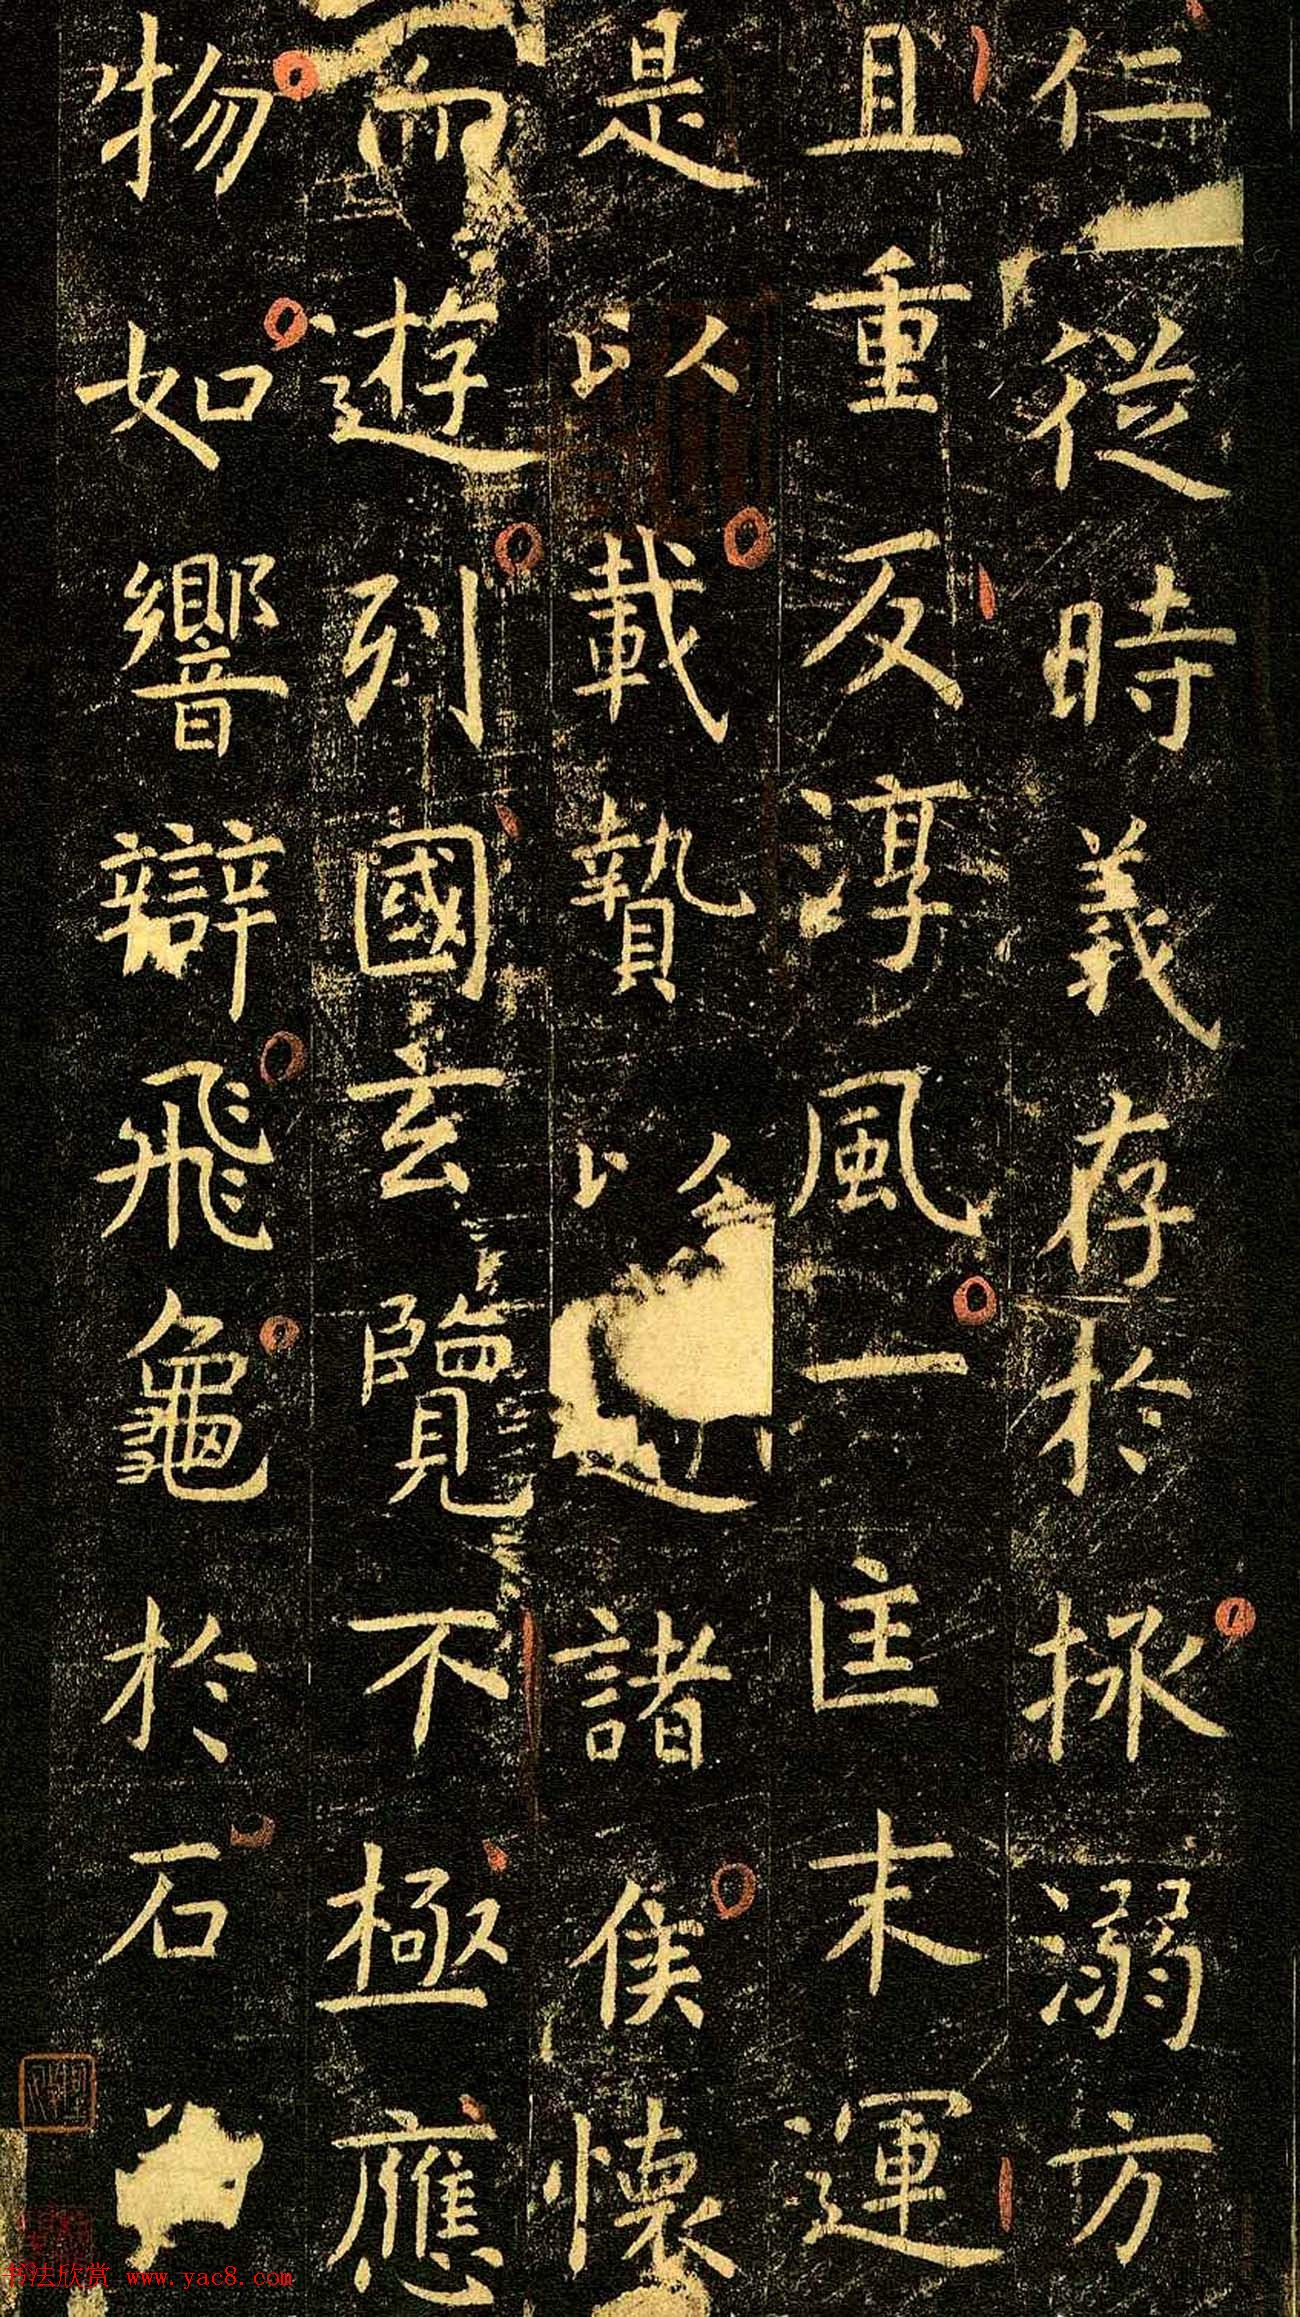 仁從時義存於拯溺方
且重反淳風一匡末運
是以載贄以諸侯懷
而遊列國玄覽不極應
物如響辯飛龜於石
书法欣赏 www.yac8.com